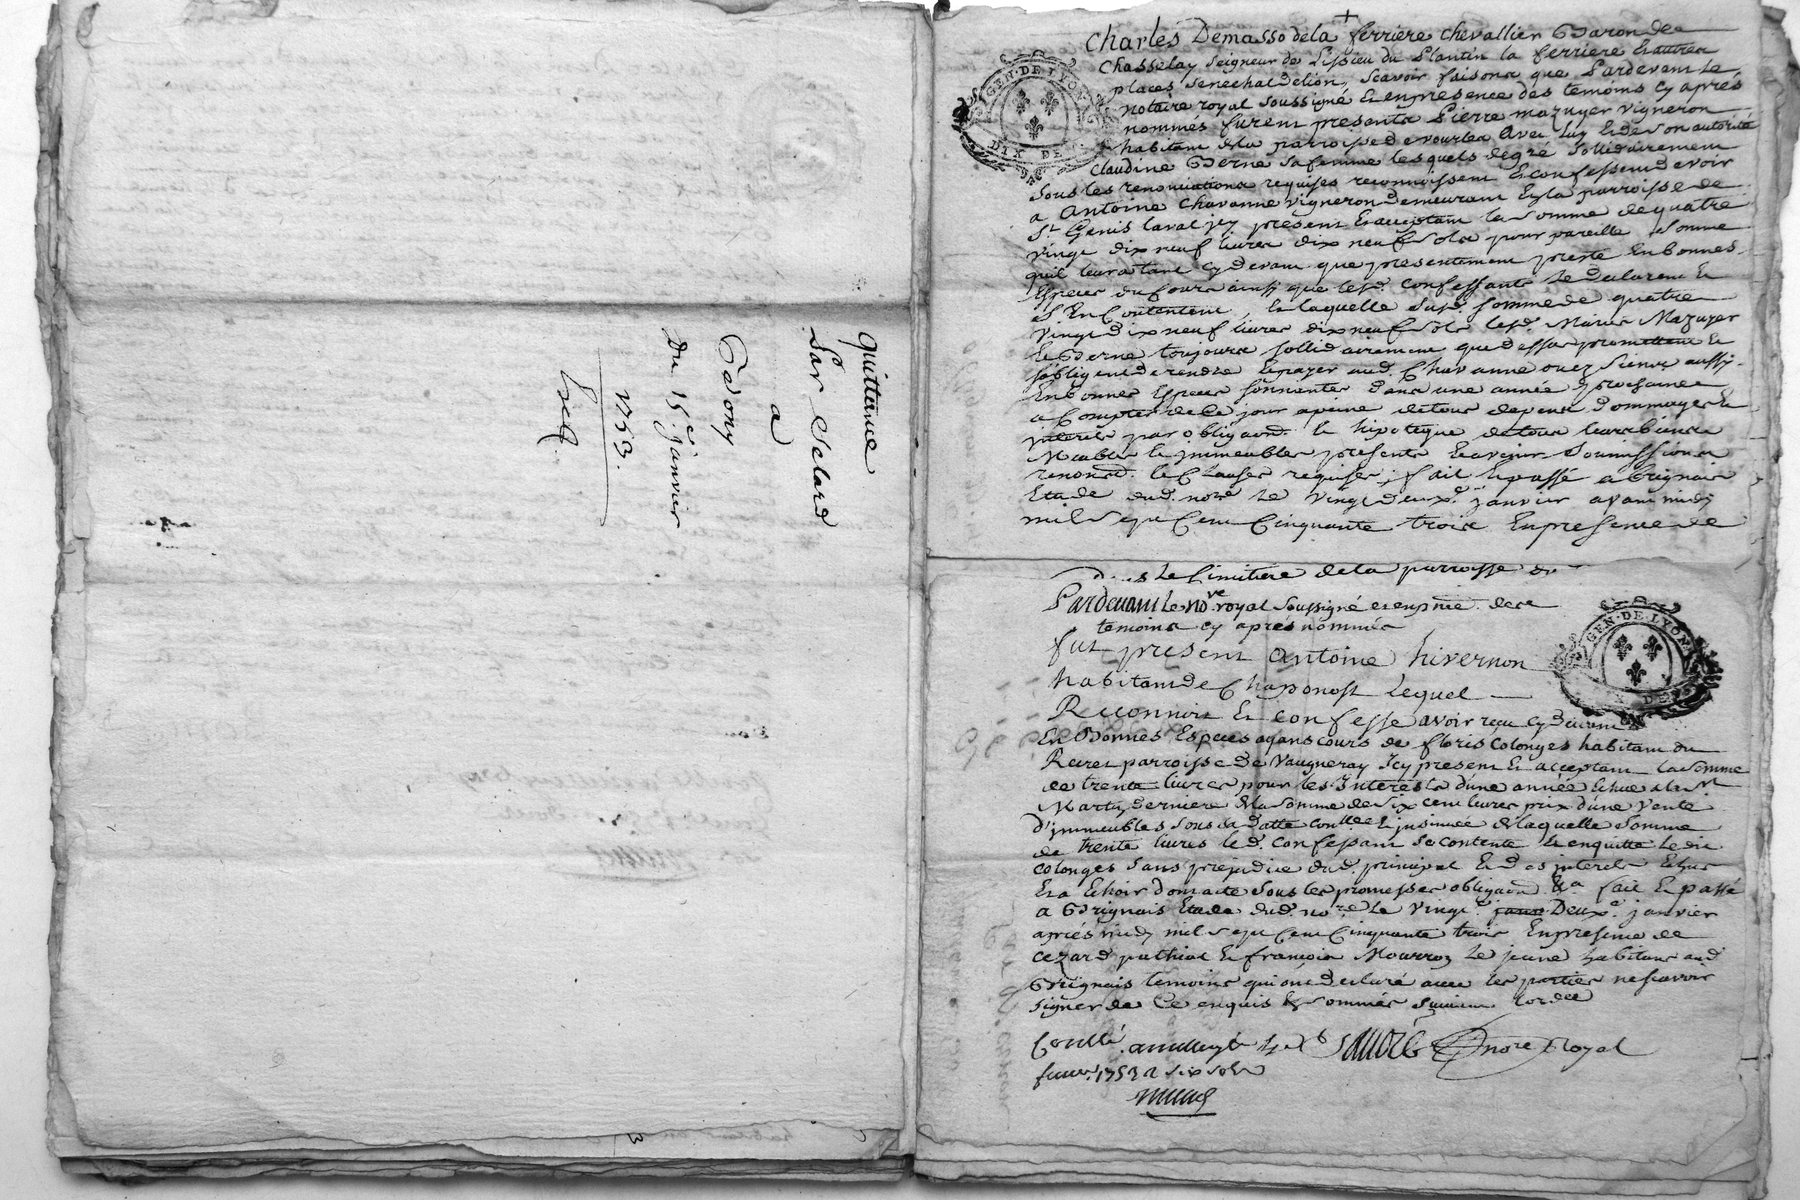 quittence
Par Selard
a
Bedory
Du 15.e janvier
1753.
GEN·DE·LYON
DIX DE
Charles Demasso dela ferriere chevallier Baron de
Chasselay seigneur de Lissieu du Plantin la ferriere & autres
places senechal delion, scavoir faisons que Pardevant Le
notaire royal soussigné & en presence des temoins cy après
nommés furent presents Pierre mazuyer vigneron
habitant de la parroisse de vourles Avec luy & de son autorité
Claudine Berne sa femme lesquels de gré sollidairement
sous les renonciations requises reconnoissent & confessent devoir
a Antoine Chavanne vigneron demeurant En la parroisse de
St. Genis laval icy present & acceptant la somme de quatre
vingt dix neuf livres dix neuf sols pour pareille somme
quil leur a tant cy devant que presentement preté En bonnes
Especes du Cours ainsi que lesd. confessants le declarent &
s'En Contentent, & laquelle susd. somme de quatre
vingt dix neuf livres dix neuf sols lesd. Mariés Mazuyer
& Berne toujours sollidairement que dessus promettent &
s'obligent de rendre & payer aud. Chavanne ou ez siens aussy
En bonnes Especes sonnantes dans une année prochaine
a Compter de Ce jour a peine de tous depens dommages &
interets par obligaond. & hipoteque de tous leurs biens
Meubles & immeubles presents & avenir soumissions
renond. & Clauses requises; fait & passé a Brignais
Etude dud. nore. Le vingt deuxe. janvier avant midy
mil sept Cent Cinquante trois En presence de
Le Cimitiere dela parroisse de
Pardevant Le nore. royal soussigné & en pnce. des
temoins cy après nommés
fut present Antoine hivernon
habitant de Chaponost Lequel
Reconnoit & confesse avoir reçu cy devant
En Bonnes Especes ayant cours de floris Colonges habitant du
Recret parroisse de Vaugneray Icy present & acceptant la somme
de trente livres pour les Interests d'une année Echue a la St
Martin derniere de la somme de six cent livres prix d'une Vente
d'immeubles sous sa datte conllée & insinuée de laquelle somme
de trente livres led. confessant se contente & en quitte le dit
Colonges sans prejudice dud. principal & des interets Echus
& a Echoir dont acte sous les promesses obligaond. &a fait & passé
a Brignais Etude dud. nore. Le vingt Deuxe. janvier
après midy mil sept Cent Cinquante trois En presence de
Cezard pathiot & françois Mourroz Le jeune habitans aud.
Brignais temoins qui ont declaré avec les parties ne scavoir
signer de Ce enquis & sommés suivant Lordce
GEN·DE·LYON
Conllé. a millery le
Sandré nore Royal
fevrr. 1753 a six sols